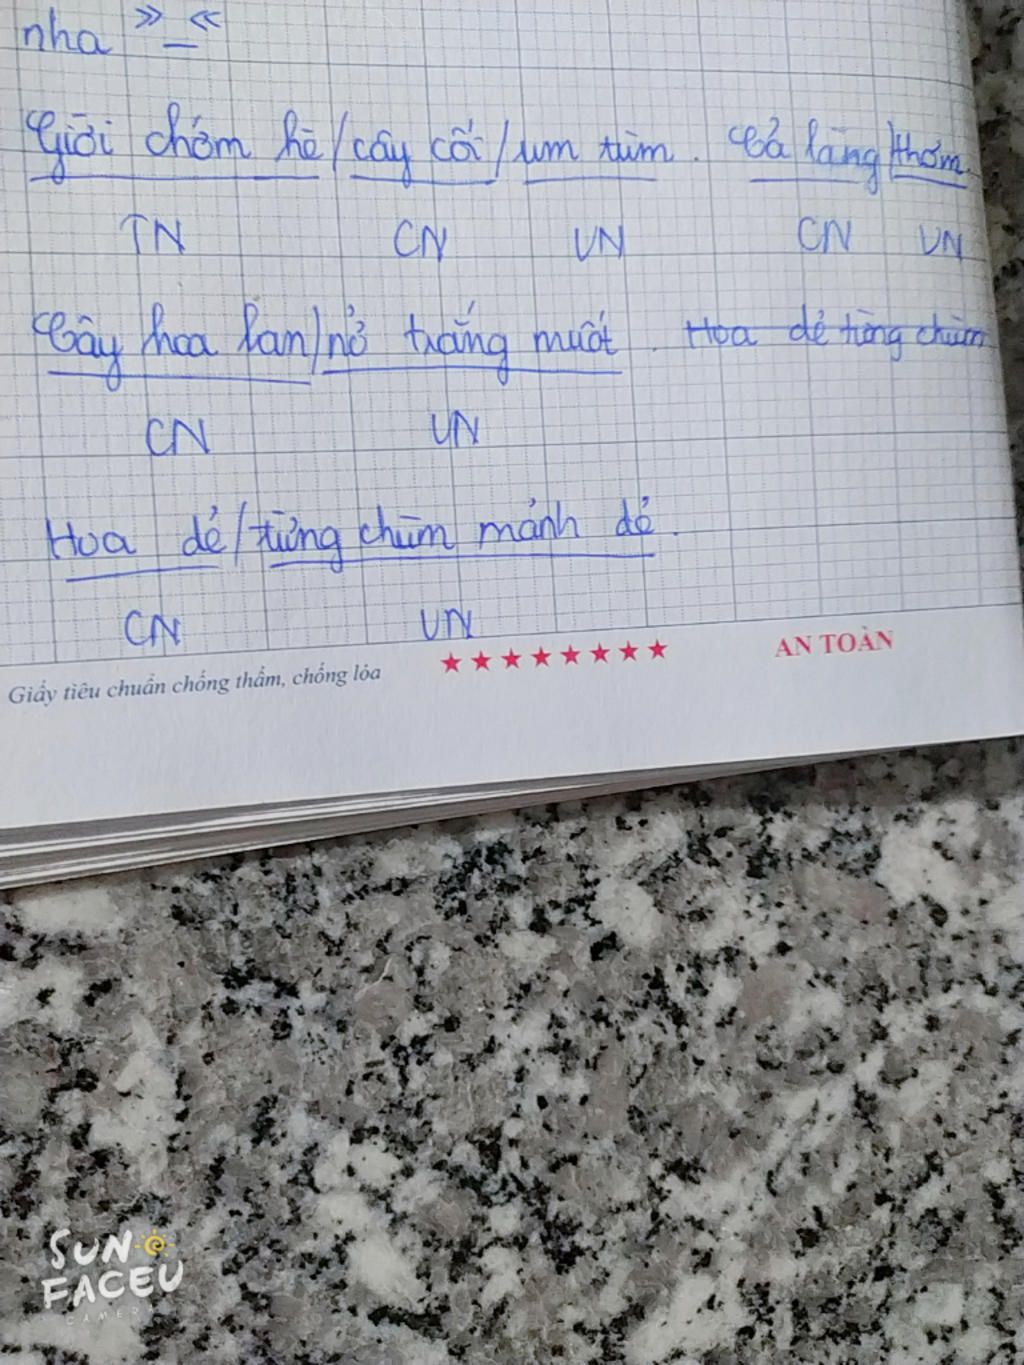 nha »_«
Giời chớm hè / cây cối / um tùm. Cả làng / thơm.
TN CN VN CN VN
Cây hoa lan / nở trắng muốt. Hoa dẻ từng chùm
CN VN
Hoa dẻ / từng chùm mảnh dẻ.
CN VN
Giấy tiêu chuẩn chống thấm, chống lóa ★★★★★★★★ AN TOÀN
SUN
FACEU
CAMERA